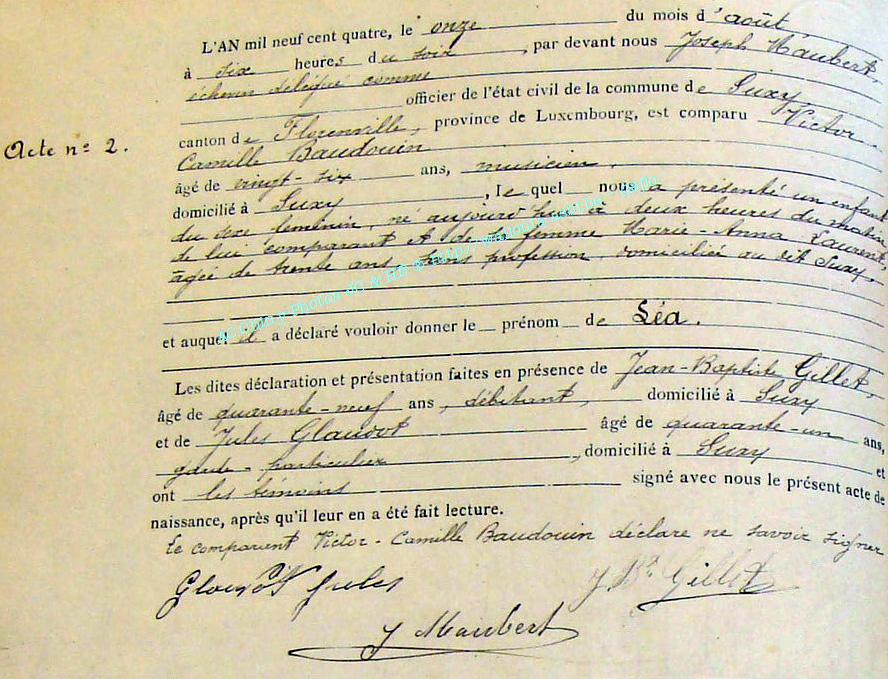 L'AN mil neuf cent quatre, le onze du mois d'août
à six heures du soir, par devant nous Joseph Maubert,
échevin délégué comme
officier de l'état civil de la commune de Suxy
canton de Florenville, province de Luxembourg, est comparu Victor
Acte nº 2.
Camille Baudouin
âgé de vingt-six ans, musicien,
domicilié à Suxy, lequel nous a présenté un enfant
du sexe féminin, né aujourd'hui à deux heures du matin
de lui comparant et de sa femme Marie-Anna Laurent,
âgée de trente ans, sans profession, domiciliée au dit Suxy,
et auquel il a déclaré vouloir donner le prénom de Léa.
Les dites déclaration et présentation faites en présence de Jean-Baptiste Gillet,
âgé de quarante-neuf ans, débitant, domicilié à Suxy
et de Jules Glauvot âgé de quarante-un ans,
garde-particulier, domicilié à Suxy et
ont les témoins signé avec nous le présent acte de
naissance, après qu'il leur en a été fait lecture.
Le comparant Victor-Camille Baudouin déclare ne savoir signer
Jules J Bte Gillet
J Maubert